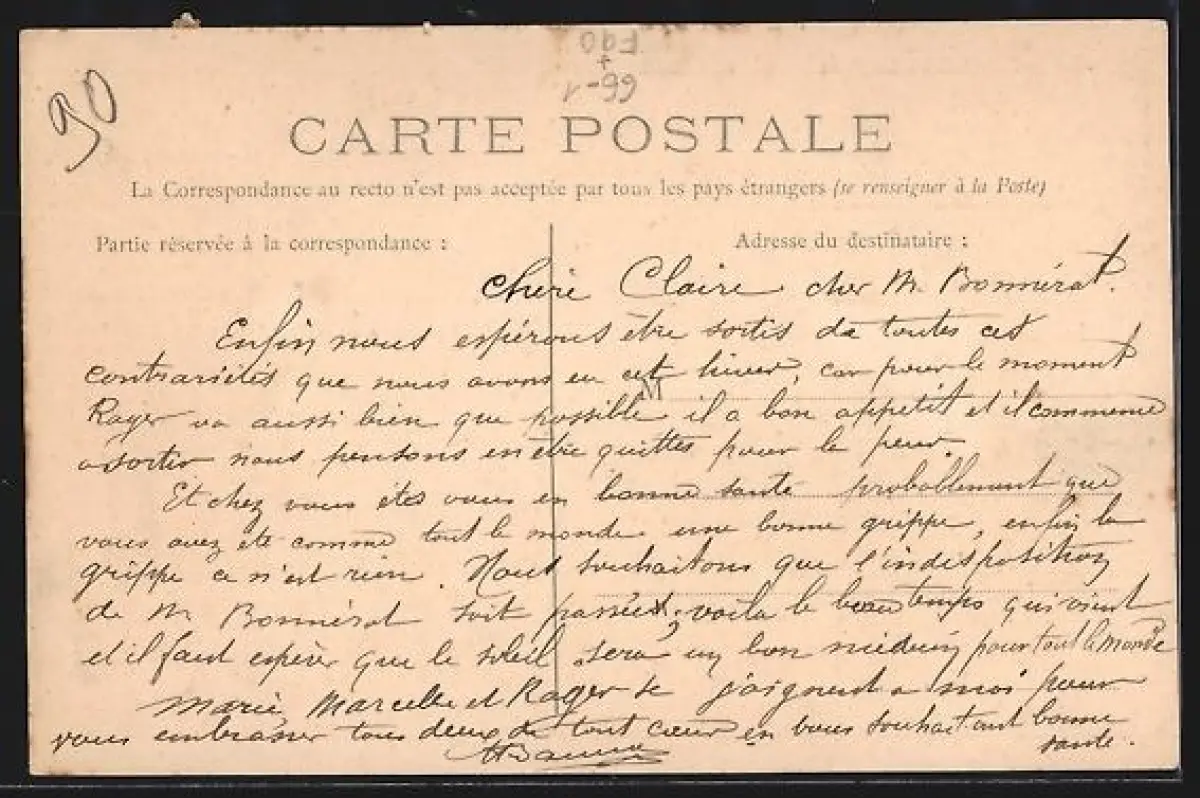 90
F90
+
66-1
CARTE POSTALE
La Correspondance au recto n'est pas acceptée par tous les pays étrangers (se renseigner à la Poste)
Partie réservée à la correspondance :
Adresse du destinataire :
Chère Claire cher Mr Bonnérat.
Enfin nous espérons être sortis de toutes ces
contrariétés que nous avons eu cet hiver, car pour le moment
M
Roger va aussi bien que possible il a bon appetit et il commence
a sortir nous pensons en être quittes pour la peur.
Et chez vous êtes vous en bonne santé probablement que
vous avez été comme tout le monde une bonne grippe, enfin la
grippe ce n'est rien. Nous souhaitons que l'indisposition
de Mr Bonnérat soit passée, voila le beau temps qui vient
et il faut espérer que le soleil sera un bon médecin pour tout le monde
Marie, Marcelle et Roger se joignent a moi pour
vous embrasser tous deux de tout cœur en vous souhaitant bonne
santé.